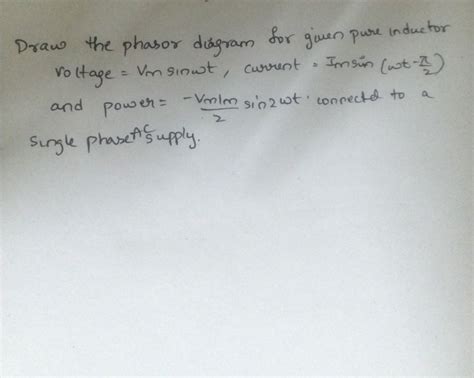 Draw the phasor diagram for given pure inductor
voltage = Vm sinωt, current = Im sin (ωt - π/2)
and power = -VmIm/2 sin2ωt. connected to a
single phase AC supply.